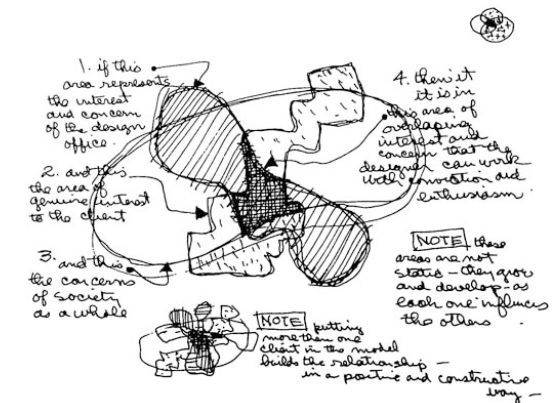 1. if this
area represents
the interest
and concern
of the design
office.
2. and this
the area of
genuine interest
to the client
3. and this
the concerns
of society
as a whole
4. then it
it is in
this area of
overlapping
interest and
concern that the
designer can work
with conviction and
enthusiasm
NOTE these
areas are not
static – they grow
and develop – as
each one influences
the others.
NOTE putting
more than one
client in the model
builds the relationship –
in a positive and constructive
way –